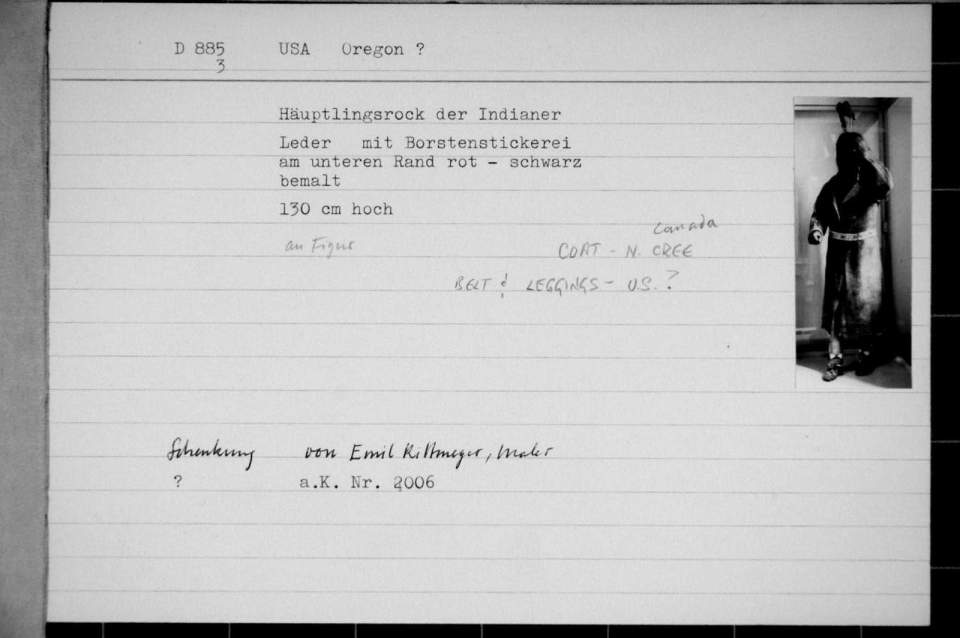 D 885 USA Oregon ?
3
Häuptlingsrock der Indianer
Leder mit Borstenstickerei
am unteren Rand rot - schwarz
bemalt
130 cm hoch
Canada
an Figur COAT - N. CREE
BELT & LEGGINGS - U.S. ?
Schenkung von Emil Rittmeyer, Maler
? a.K. Nr. 2006